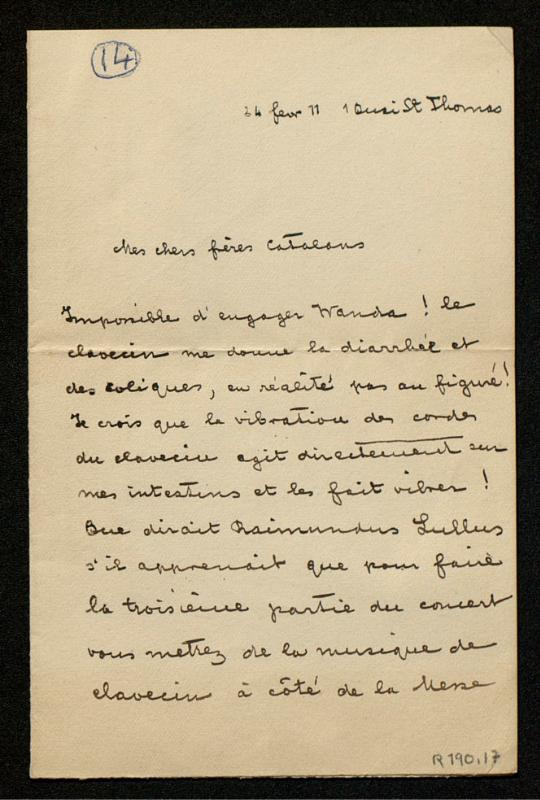 14
24 fevr 11 1 Quai St Thomas
Mes chers frères Catalans
Impossible d'engager Wanda ! le
clavecin me donne la diarrhée et
des coliques, en réalité pas au figuré!
Je crois que la vibration des cordes
du clavecin agit directement sur
mes intestins et les fait vibrer !
Que dirait Raimundus Lullus
s'il apprenait que pour faire
la troisième partie du concert
vous metrez de la musique de
clavecin à côté de la Messe
R 190,17